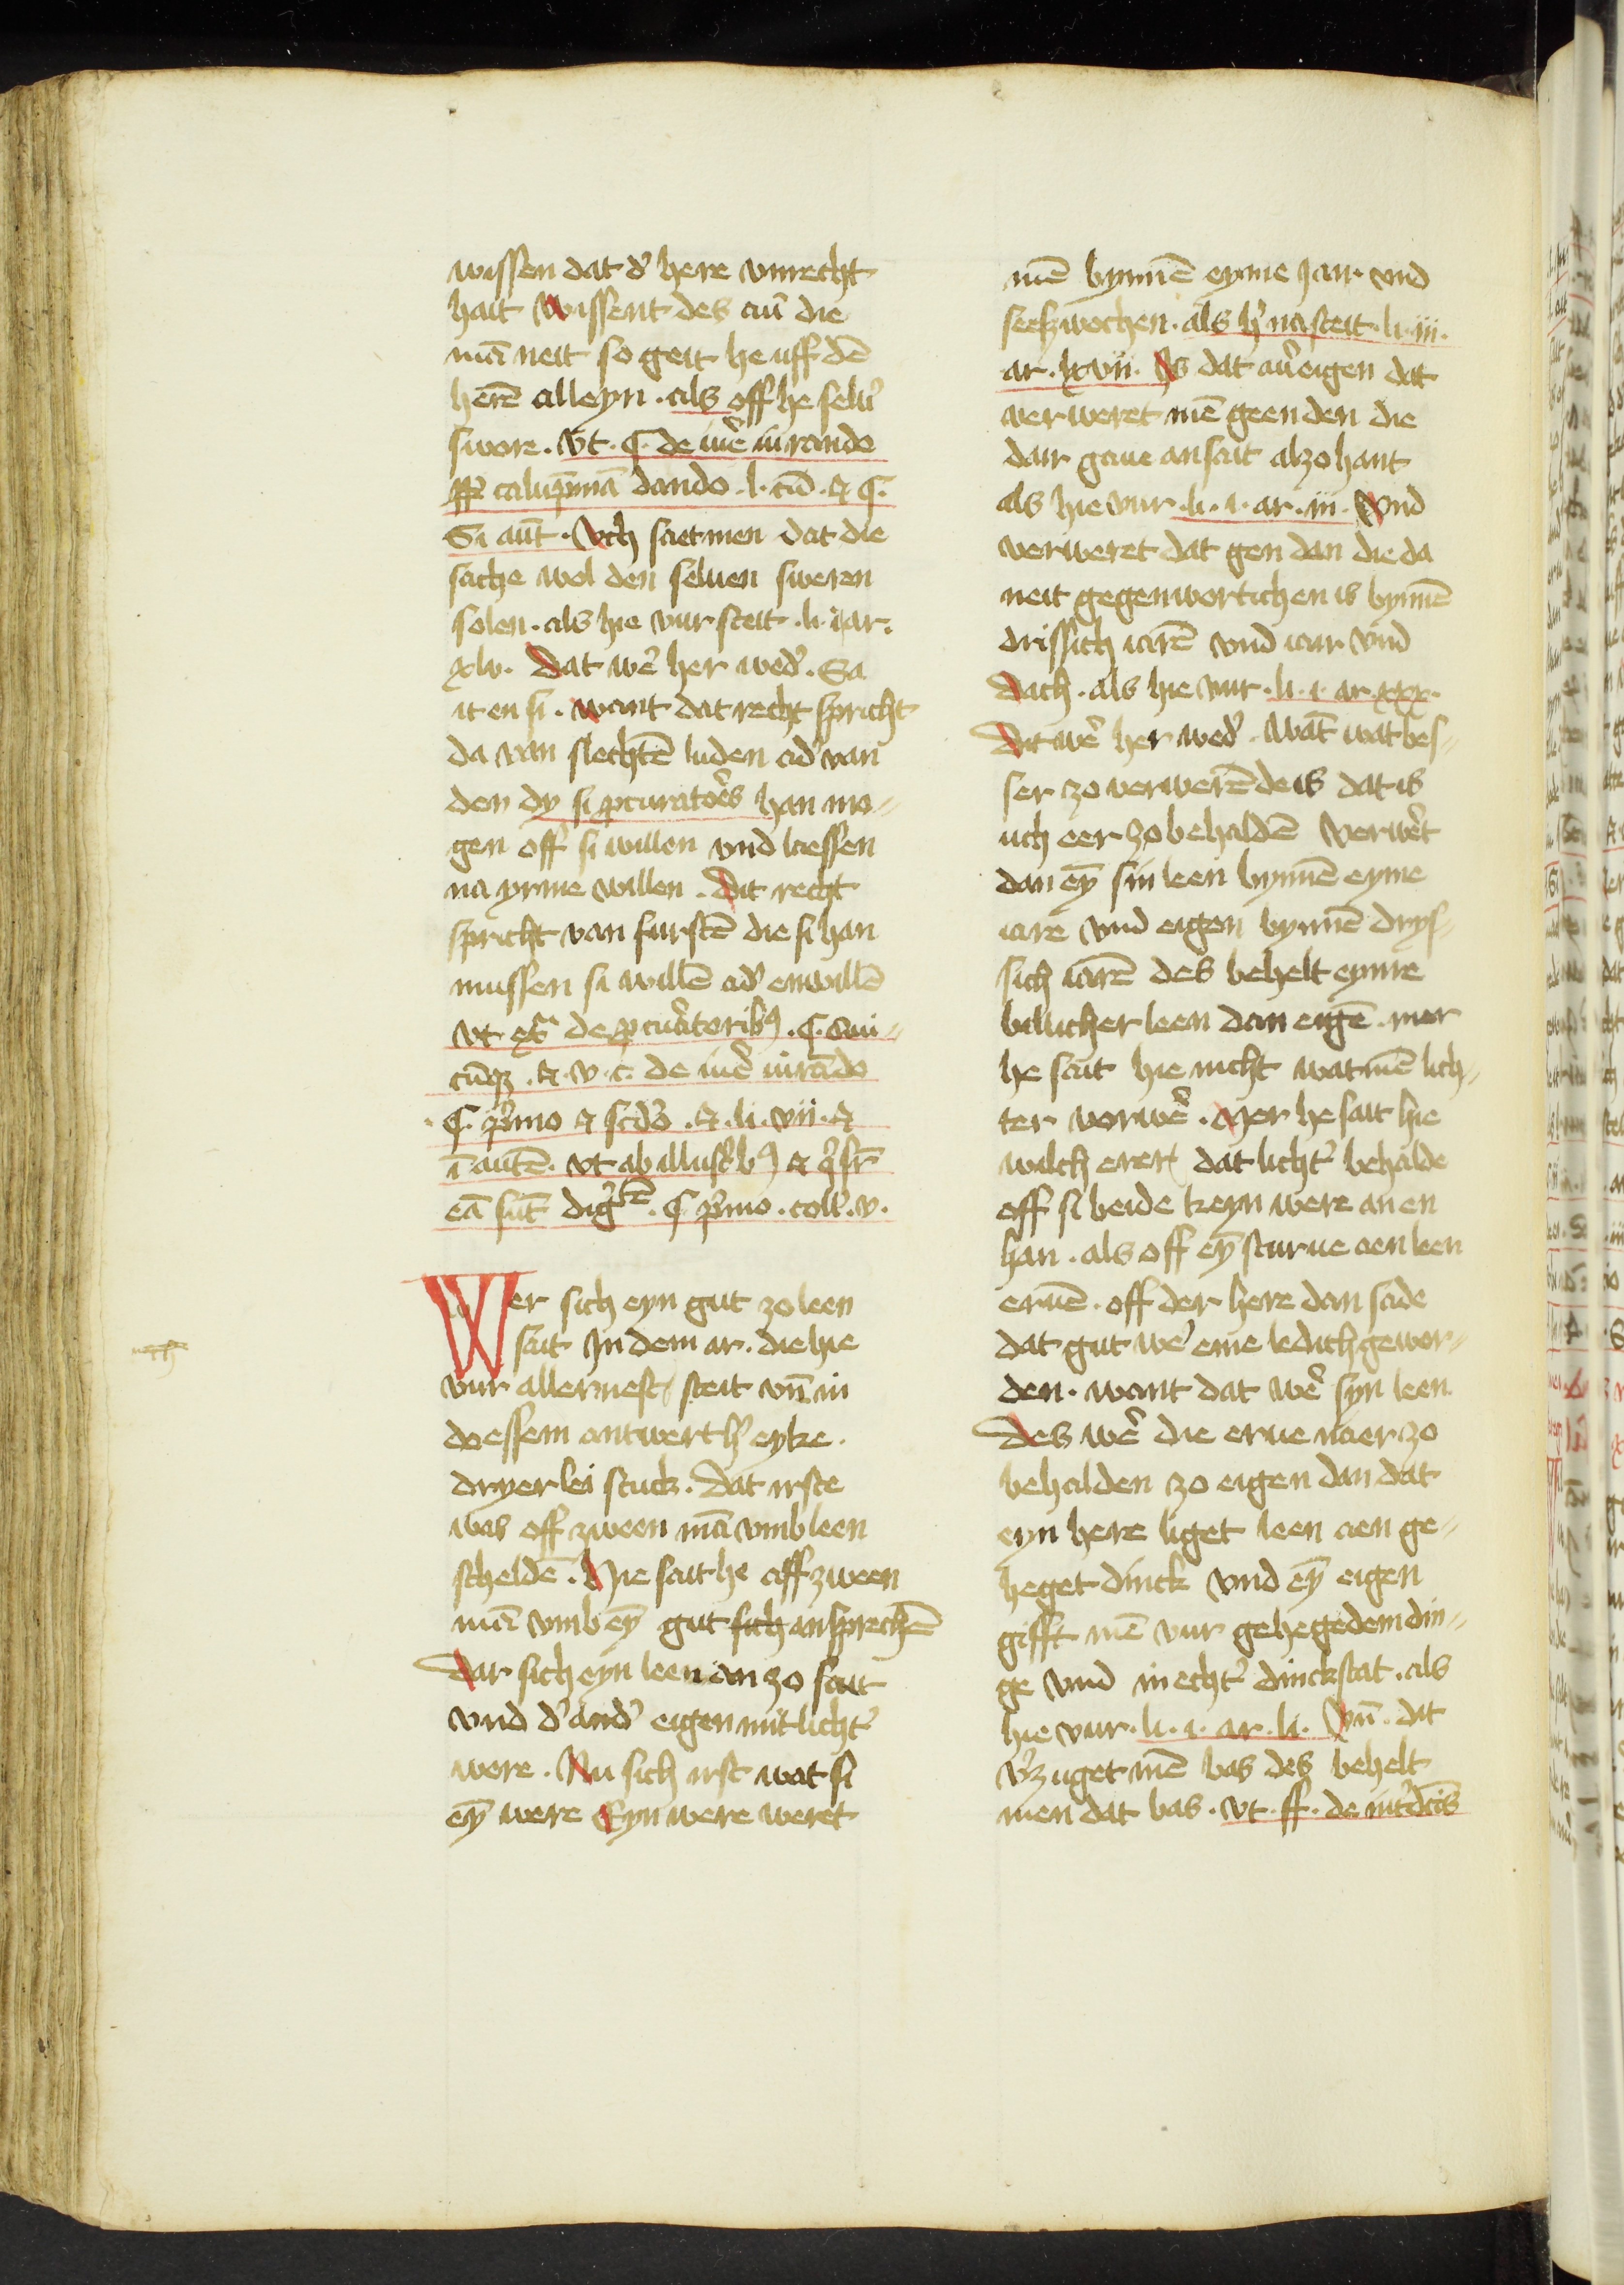 wissen dat d' here vnrecht
hait Wissent des auͤ die
mā neit so geit he uff dē
herē alleyn . als off he selu'
swore . vt . C . de iur̄e iurando
ꝓpt̄ calūpniā dando . l . cū . ⁊ C .
Si aūt . Vch saet men dat die
sache wol den seluen sweren
solen . als hie vur steit . li . i ar .
xlv . Dat we' her wed' . Sa
it en si . want dat recht spricht
da van slechtē luden ad' van
den dy si ꝓcuratōes han mo⸗
gen off si willen vnd laessen
na yrme willen . Dit recht
spricht van furstē die si han
mussen si willē ad' enwillē
vt . ext̄ de ꝓcuratorib9 . C . Qui⸗
cūqꝫ . ⁊ . v . c . de iur̄e iurādo
C . p̄mo ⁊ scd̄o . ⁊ . li . vii . ⁊
ī autē . vt ab illustb9 ⁊ q̄ sr̄
eā sūt dig̅tē . C p̄mo . coll . v .
Wer sich eyn gut zo leen
sait Jn dem ar . die hie
vur allernest steit vn̄ in
doessem antwert h' eyke .
dryerlei stuck . Dat irste
was off zween mā vmb leen
scheldē . Hie sait he aff zween
mā vmb eȳ gut sich ansprechē
Dar sich eyn leen an zo sait
vnd d' and' eigen mit licht'
were . Nu sich irst wat si
eȳ were Eyn were weret
mē bynnē eyme Jair . vnd
seeszwochen . als h' na steit . li . iii .
ar . lxvii . Js dat au' eigen dat
verweret mē geen den die
dair gaue an sait alzo hant
als hie vur . li . i . ar . iii . Vnd
verweret dat gen dan die da
neit gegenwortichen is bynnē
drissich iarē vnd iar vnd
Dach . als hie vur . li . i . ar . xxx .
Dit we' her wed' . Wāt wat bes⸗
ser zo verwerē de is dat is
uch eer zo behaldē Verwēt
dan eȳ sin leen bynnē eyme
iare vnd eigen bynnē drys⸗
sich iarē des behelt eyme
billicher leen dan eigē . mer
he sait hie nicht wat mē lich⸗
ter verwe' . Mer he sait hie
wilch erer dat licht' behalde
off si beide keyn were an en
han . als off eȳ sturue aen leen
eruē . off der here dan sade
dat gut we' eme ledich gewor⸗
den . want dat we' syn leen
Des we' die erue naer zo
behalden zo eigen dan dat
eyn here liget leen aen ge⸗
heget dinck vnd eȳ eigen
gifft mē vur gehegedem din⸗
ge vnd in echt' dinckstat . als
hie vur . li . i . ar . li . Vn̄ . dat
v'zuget mē bas des behelt
men dat bas . vt . ff . de int'dc̄is